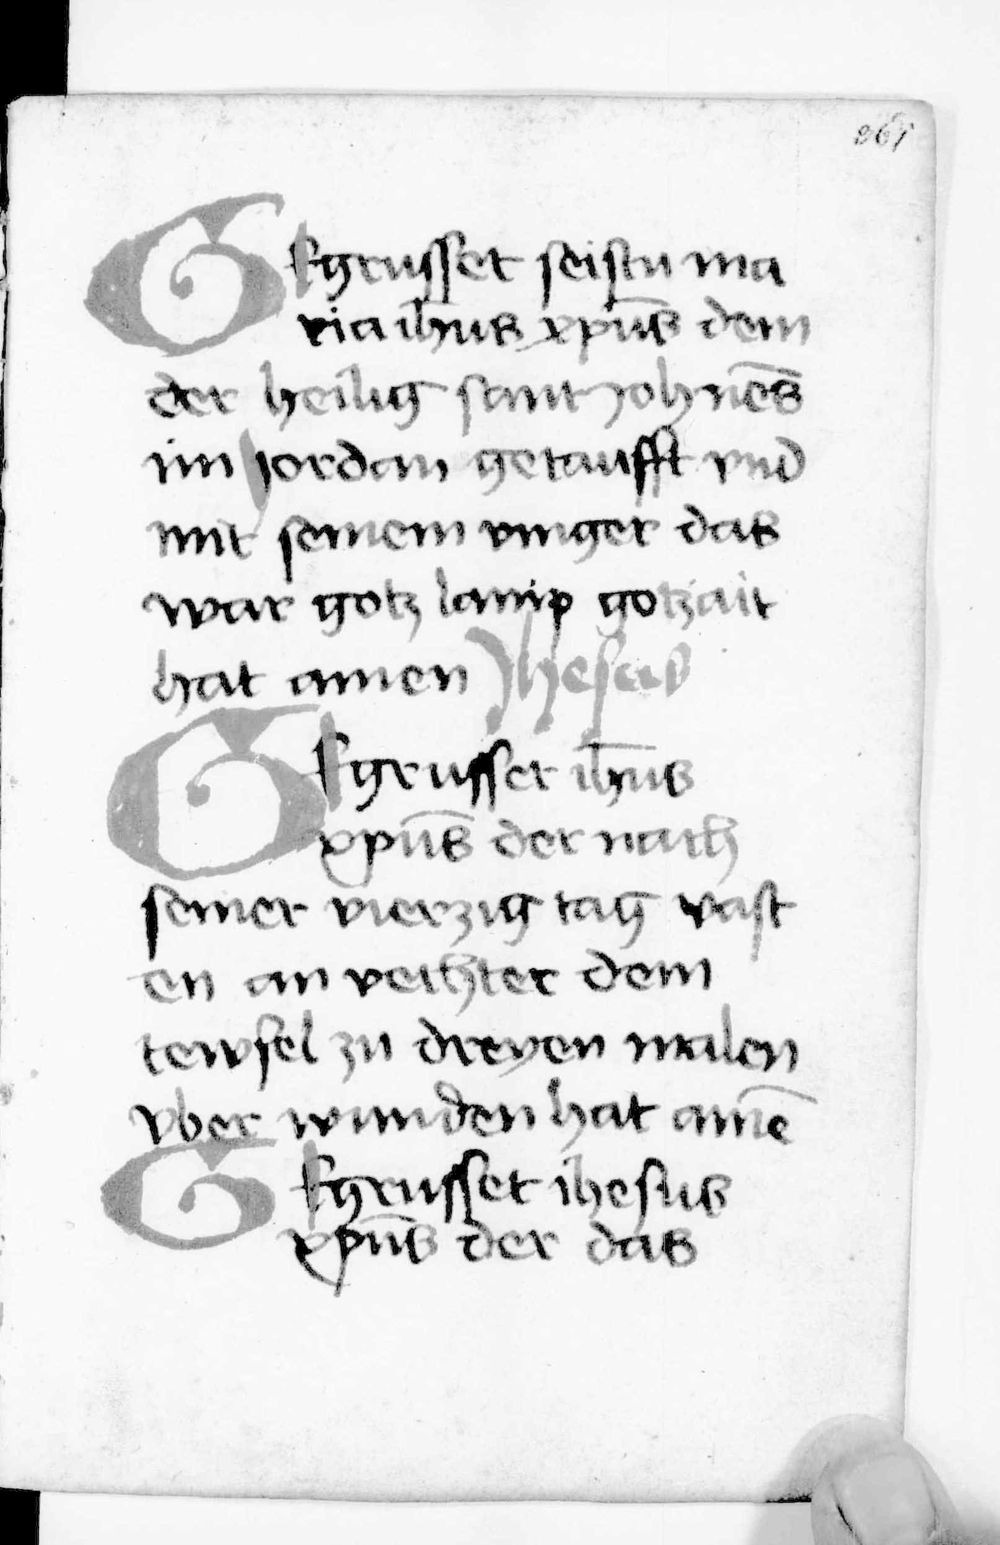 261
Gegrusset seistu ma
ria ihūs xpūs dem
der heilig sant johnēs
im jordan getaufft vnd
mit seinem vinger das
war gotz lamp gotzait
hat amen Jhesus
Gegrusset ihūs
xpūs der nach
seiner vierzig tag vast
en an veihter dem
tewfel zu dreyen malen
vber wunden hat amē
Gegrusset ihesus
xpūs der das